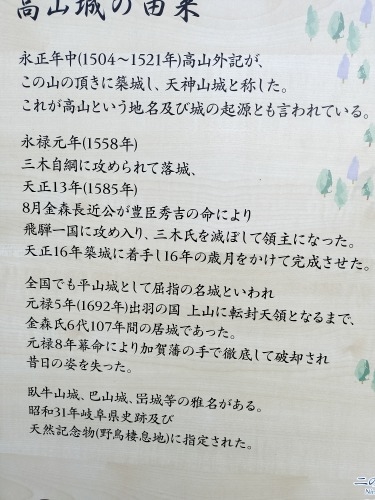 高山城の由来
永正年中(1504～1521年)高山外記が、
この山の頂きに築城し、天神山城と称した。
これが高山という地名及び城の起源とも言われている。
永禄元年(1558年)
三木自綱に攻められて落城、
天正13年(1585年)
8月金森長近公が豊臣秀吉の命により
飛騨一国に攻め入り、三木氏を滅ぼして領主になった。
天正16年築城に着手し16年の歳月をかけて完成させた。
全国でも平山城として屈指の名城といわれ
元禄5年(1692年)出羽の国 上山に転封天領となるまで、
金森氏6代107年間の居城であった。
元禄8年幕命により加賀藩の手で徹底して破却され
昔日の姿を失った。
臥牛山城、巴山城、喦城等の雅名がある。
昭和31年岐阜県史跡及び
天然記念物(野鳥棲息地)に指定された。
二の